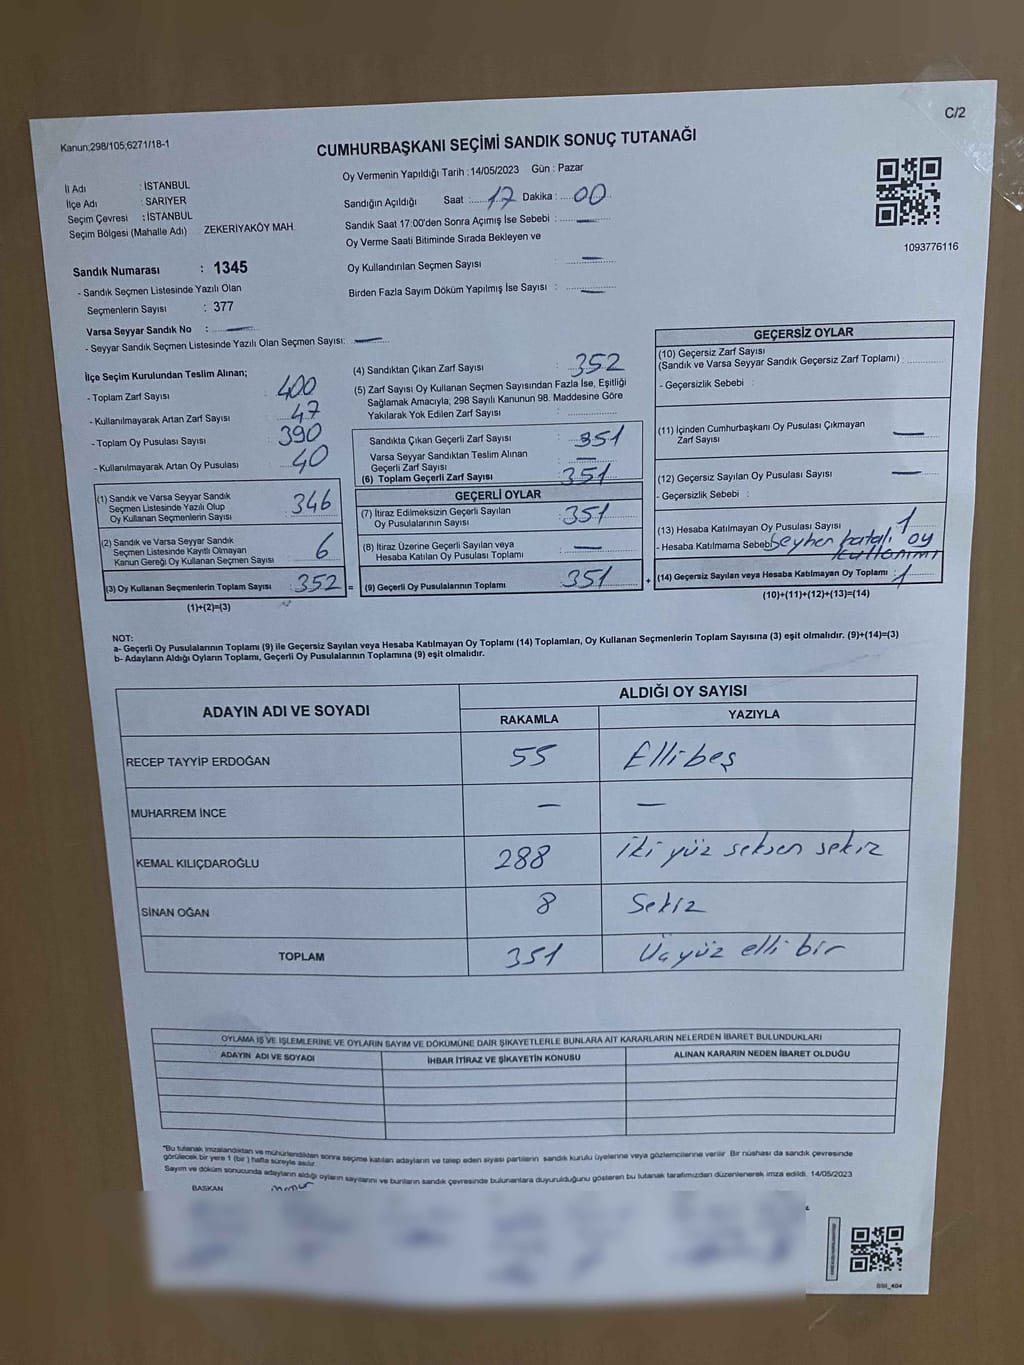 Kanun:298/105;6271/18-1
C/2
CUMHURBAŞKANI SEÇİMİ SANDIK SONUÇ TUTANAĞI
Oy Vermenin Yapıldığı Tarih : 14/05/2023 Gün : Pazar
İl Adı : İSTANBUL
İlçe Adı : SARIYER
Seçim Çevresi : İSTANBUL
Seçim Bölgesi (Mahalle Adı) ZEKERİYAKÖY MAH.
Sandık Numarası : 1345
- Sandık Seçmen Listesinde Yazılı Olan
Seçmenlerin Sayısı : 377
Varsa Seyyar Sandık No : —
- Seyyar Sandık Seçmen Listesinde Yazılı Olan Seçmen Sayısı: —
Sandığın Açıldığı Saat : 17 Dakika : 00
Sandık Saat 17:00'den Sonra Açımış İse Sebebi : —
Oy Verme Saati Bitiminde Sırada Bekleyen ve
Oy Kullandırılan Seçmen Sayısı : —
Birden Fazla Sayım Döküm Yapılmış İse Sayısı : —
1093776116
İlçe Seçim Kurulundan Teslim Alınan;
- Toplam Zarf Sayısı : 400
- Kullanılmayarak Artan Zarf Sayısı : 47
- Toplam Oy Pusulası Sayısı : 390
- Kullanılmayarak Artan Oy Pusulası : 40
(1) Sandık ve Varsa Seyyar Sandık
Seçmen Listesinde Yazılı Olup
Oy Kullanan Seçmenlerin Sayısı : 346
(2) Sandık ve Varsa Seyyar Sandık
Seçmen Listesinde Kayıtlı Olmayan
Kanun Gereği Oy Kullanan Seçmen Sayısı : 6
(3) Oy Kullanan Seçmenlerin Toplam Sayısı : 352 =
(1)+(2)=(3)
(4) Sandıktan Çıkan Zarf Sayısı : 352
(5) Zarf Sayısı Oy Kullanan Seçmen Sayısından Fazla İse, Eşitliği
Sağlamak Amacıyla, 298 Sayılı Kanunun 98. Maddesine Göre
Yakılarak Yok Edilen Zarf Sayısı :
Sandıkta Çıkan Geçerli Zarf Sayısı : 351
Varsa Seyyar Sandıktan Teslim Alınan
Geçerli Zarf Sayısı : —
(6) Toplam Geçerli Zarf Sayısı : 351
GEÇERLİ OYLAR
(7) İtiraz Edilmeksizin Geçerli Sayılan
Oy Pusulalarının Sayısı : 351
(8) İtiraz Üzerine Geçerli Sayılan veya
Hesaba Katılan Oy Pusulası Toplamı : —
(9) Geçerli Oy Pusulalarının Toplamı : 351 +
GEÇERSİZ OYLAR
(10) Geçersiz Zarf Sayısı
(Sandık ve Varsa Seyyar Sandık Geçersiz Zarf Toplamı) :
- Geçersizlik Sebebi :
(11) İçinden Cumhurbaşkanı Oy Pusulası Çıkmayan
Zarf Sayısı : —
(12) Geçersiz Sayılan Oy Pusulası Sayısı : —
- Geçersizlik Sebebi :
(13) Hesaba Katılmayan Oy Pusulası Sayısı : 1
- Hesaba Katılmama Sebebi oy
(14) Geçersiz Sayılan veya Hesaba Katılmayan Oy Toplamı : 1
(10)+(11)+(12)+(13)=(14)
NOT:
a- Geçerli Oy Pusulalarının Toplamı (9) ile Geçersiz Sayılan veya Hesaba Katılmayan Oy Toplamı (14) Toplamları, Oy Kullanan Seçmenlerin Toplam Sayısına (3) eşit olmalıdır. (9)+(14)=(3)
b- Adayların Aldığı Oyların Toplamı, Geçerli Oy Pusulalarının Toplamına (9) eşit olmalıdır.
ADAYIN ADI VE SOYADI
ALDIĞI OY SAYISI
RAKAMLA YAZIYLA
RECEP TAYYİP ERDOĞAN 55 Elli beş
MUHARREM İNCE — —
KEMAL KILIÇDAROĞLU 288 iki yüz seksen sekiz
SİNAN OĞAN 8 Sekiz
TOPLAM 351 Üçyüz elli bir
OYLAMA İŞ VE İŞLEMLERİNE VE OYLARIN SAYIM VE DÖKÜMÜNE DAİR ŞİKAYETLERLE BUNLARA AİT KARARLARIN NELERDEN İBARET BULUNDUKLARI
ADAYIN ADI VE SOYADI İHBAR İTİRAZ VE ŞİKAYETİN KONUSU ALINAN KARARIN NEDEN İBARET OLDUĞU
*Bu tutanak imzalandıktan ve mühürlendikten sonra seçime katılan adayların ve talep eden siyasi partilerin sandık kurulu üyelerine veya gözlemcilerine verilir. Bir nüshası da sandık çevresinde
görülecek bir yere 1 (bir) hafta süreyle asılır.
Sayım ve döküm sonucunda adayların aldığı oyların sayılarını ve bunların sandık çevresinde bulunanlara duyurulduğunu gösteren bu tutanak tarafımızdan düzenlenerek imza edildi. 14/05/2023
BAŞKAN
BSI_404